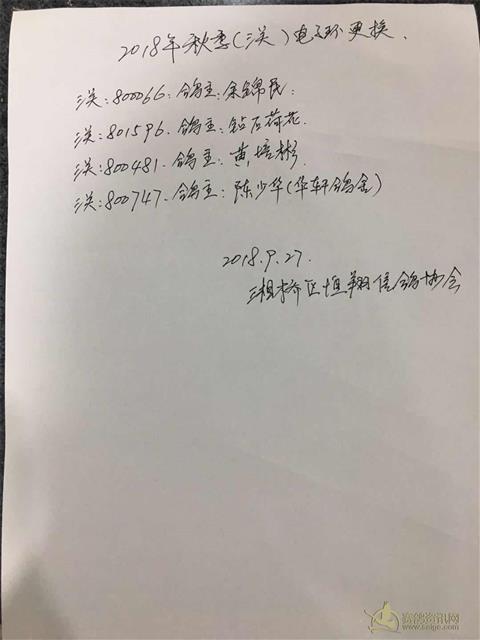 2018年秋季(三关)电子环更换.
三关:800066.鸽主:余锦民.
三关:801596.鸽主:钻石荷花.
三关:800481.鸽主:黄培彬.
三关:800747.鸽主:陈少华(华轩鸽舍)
2018.9.27.
湘桥区恒翔信鸽协会
赛鸽资讯网
www.saige.com